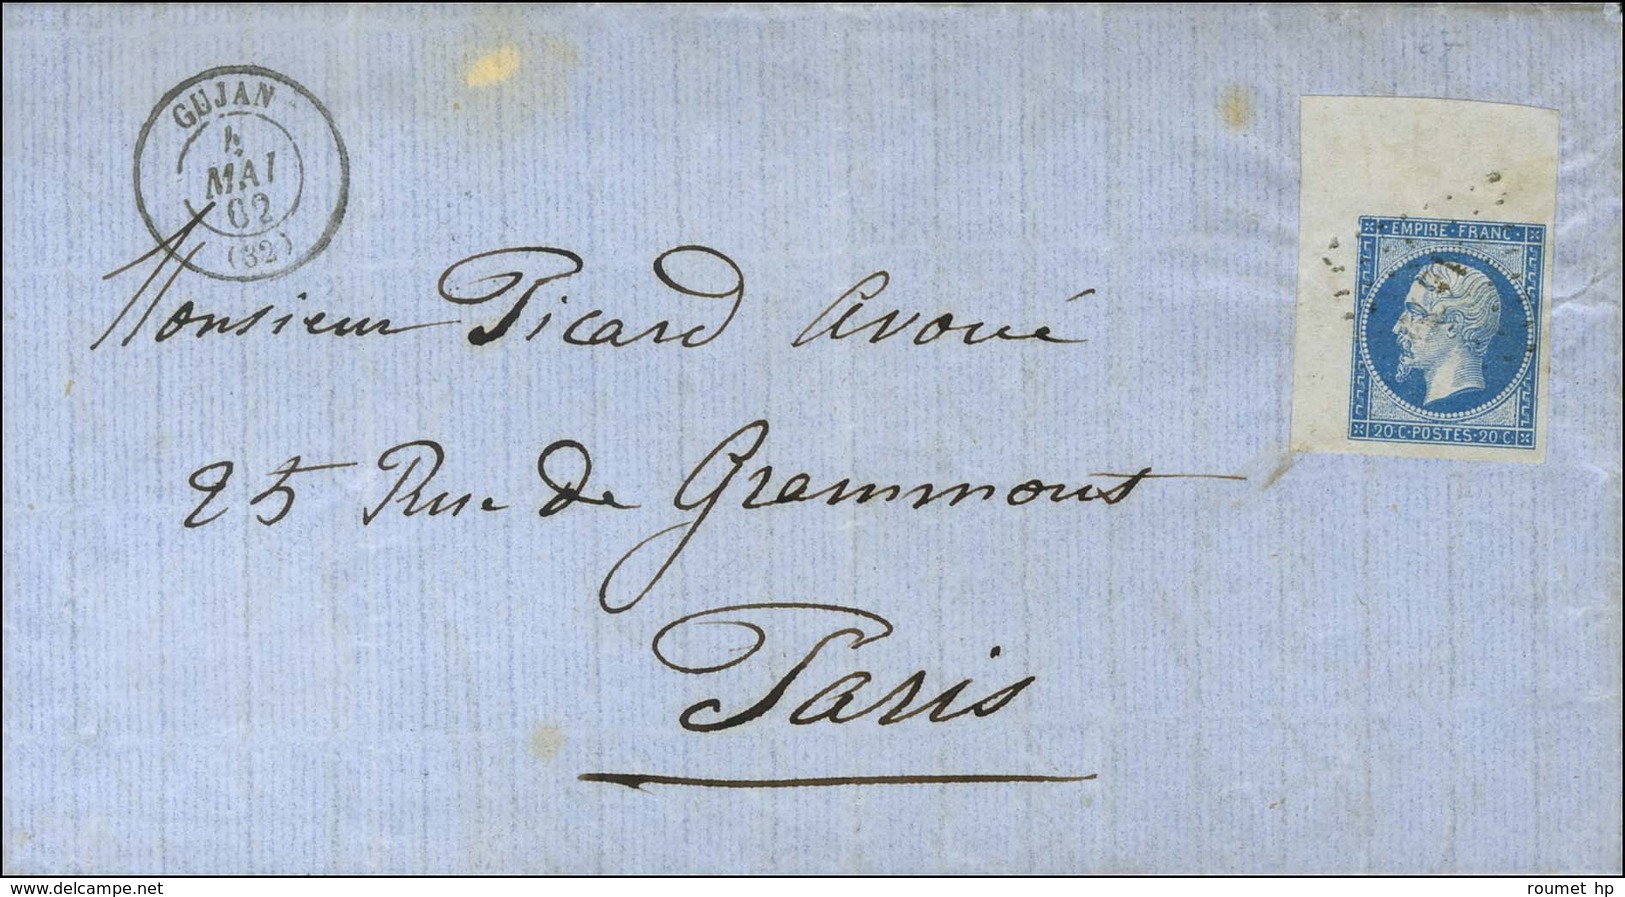 GUJAN
4
MAI
62
(32)
EMPIRE · FRANC ·
20 C · POSTES · 20 C
Monsieur Picard Avoué
25 Rue de Grammont
Paris
www.delcampe.net
roumet hp